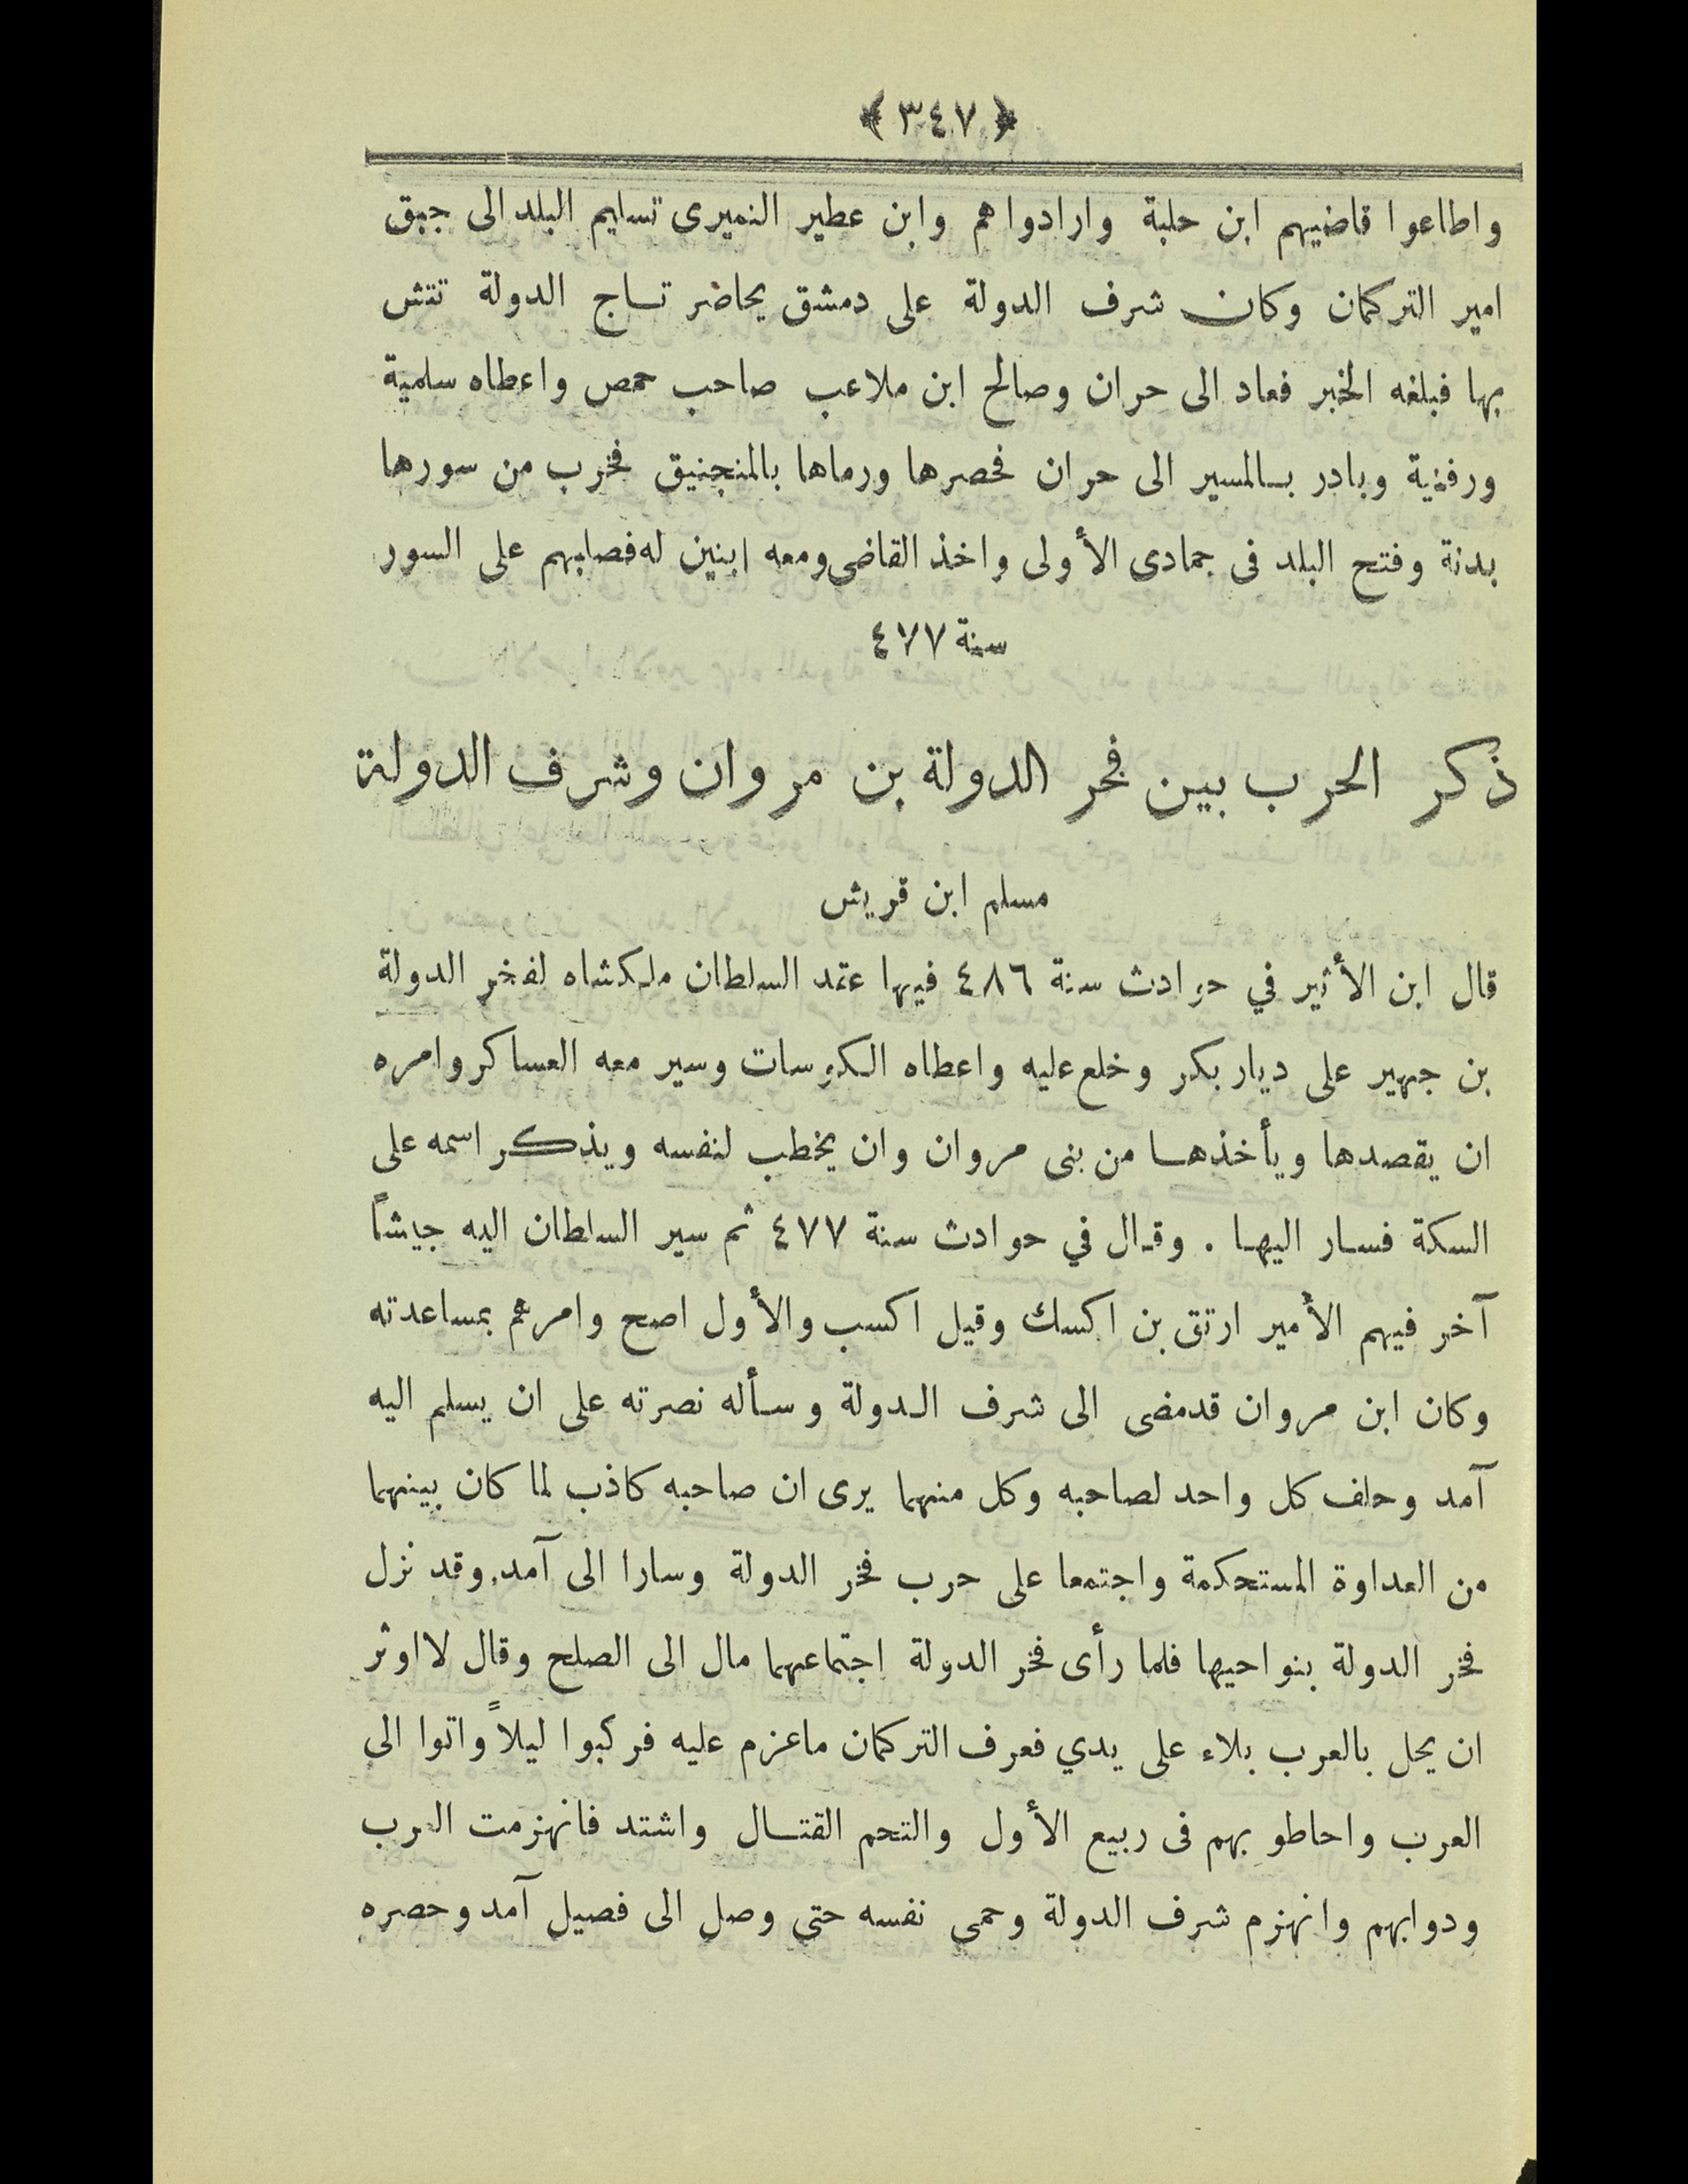 ﴿ ٣٤٧ ﴾
واطاعوا قاضيهم ابن حلبة وارادواهم وابن عطير النميرى تسليم البلد الى جبق
امير التركمان وكان شرف الدولة على دمشق يحاضر تاج الدولة تتش
بها فبلغه الخبر فعاد الى حران وصالح ابن ملاعب صاحب حمص واعطاه سلمية
ورفنية وبادر بالمسير الى حران فحصرها ورماها بالمنجنيق فخرب من سورها
بدنة وفتح البلد فى جمادى الأولى واخذ القاضى ومعه ابنين له فصلبهم على السور
سنة ٤٧٧
ذكر الحرب بين فخر الدولة بن مروان وشرف الدولة
مسلم ابن قريش
قال ابن الأثير في حوادث سنة ٤٨٦ فيها عقد السلطان ملكشاه لفخر الدولة
بن جهير على ديار بكر وخلع عليه واعطاه الكوسات وسير معه العساكر وامره
ان يقصدها ويأخذها من بنى مروان وان يخطب لنفسه ويذكر اسمه على
السكة فسار اليها . وقال في حوادث سنة ٤٧٧ ثم سير السلطان اليه جيشاً
آخر فيهم الأمير ارتق بن اكسك وقيل اكسب والأول اصح وامرهم بمساعدته
وكان ابن مروان قدمضى الى شرف الدولة وسأله نصرته على ان يسلم اليه
آمد وحلف كل واحد لصاحبه وكل منهما يرى ان صاحبه كاذب لما كان بينهما
من العداوة المستحكمة واجتمعا على حرب فخر الدولة وسارا الى آمد وقد نزل
فخر الدولة بنواحيها فلما رأى فخر الدولة اجتماعهما مال الى الصلح وقال لااوثر
ان يحل بالعرب بلاء على يدي فعرف التركمان ماعزم عليه فركبوا ليلاً واتوا الى
العرب واحاطو بهم فى ربيع الأول والتحم القتال واشتد فانهزمت العرب
ودوابهم وانهزم شرف الدولة وحمى نفسه حتى وصل الى فصيل آمد وحصره